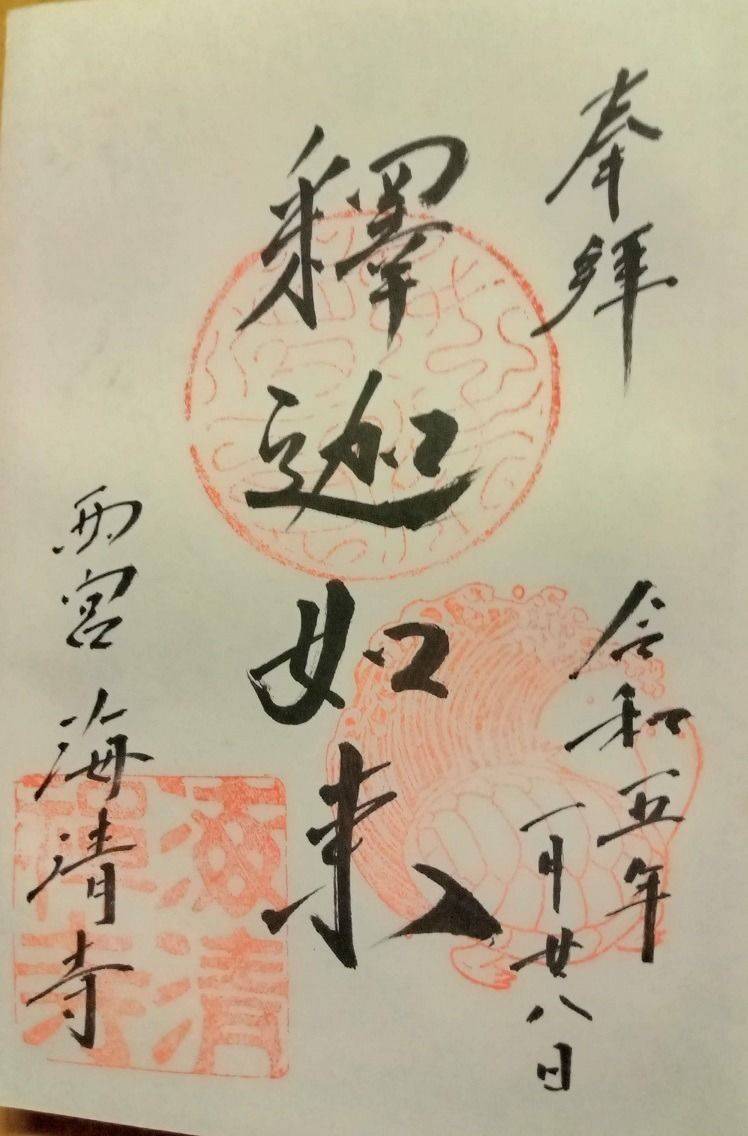 奉拝
令和五年
一月廿八日
釋迦如来
西宮 海清寺
海清禅寺